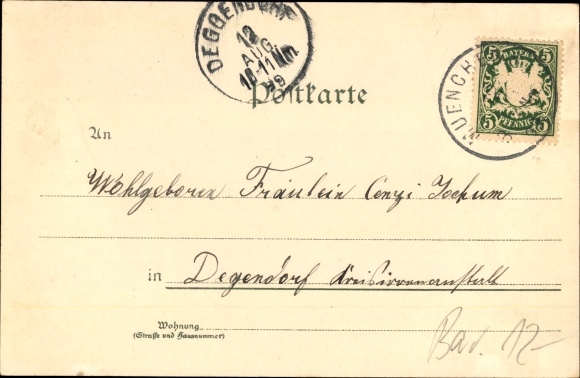 DEGGENDORF
12
AUG.
10-11 Vm.
99
Postkarte
MUENCHEN
BAYERN
5 5
5 PFENNIG 5
An
Wohlgeboren Fräulein Cenzi Jochum
in Degendorf Kreisirrenanstalt
Wohnung
(Straße und Hausnummer)
Bay. 12-